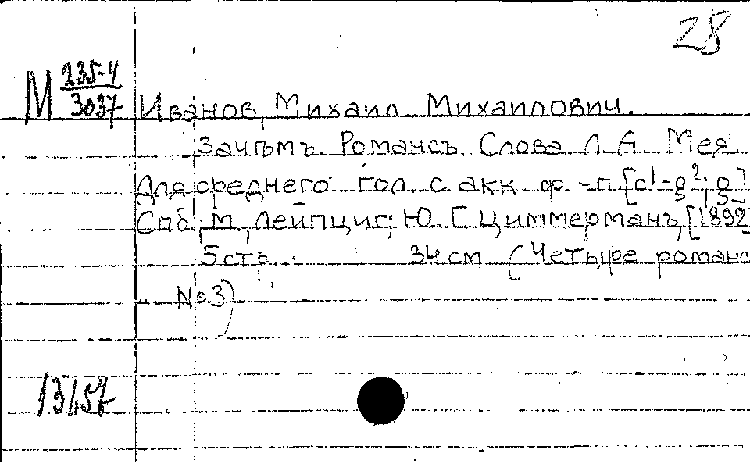 28
М 235-4
3037
Иванов, Михаил Михаилович.
Зачѣмъ. Романсъ. Слова Л. А. Мея
Для среднего гол. с акк. ф.-п.
Спб., М., Лейпциг, Ю. Г. Циммерманъ, [1892]
5 стр. 34 см (Четыре романс
№ 3)
13157